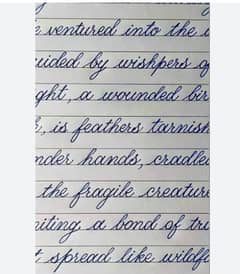 e ventured into the
uided by wishpers of
ght, a wounded bir
, is feathers tarnish
nder hands, cradle
the fragile creature
niting a bond of tru
t spread like wildf